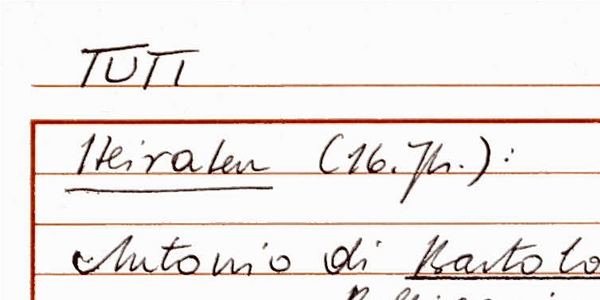 TUTI
Heiraten (16. Jh.):
Antonio di Bartolo